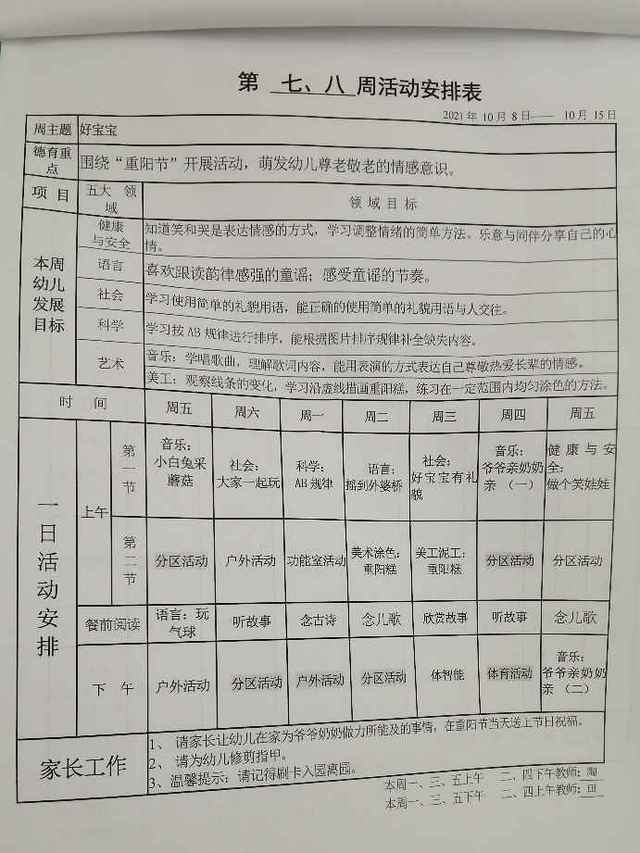 第 七、八 周活动安排表
2021年10月8日—— 10月15日
周主题 好宝宝
德育重点 围绕“重阳节”开展活动，萌发幼儿尊老敬老的情感意识。
项 目 五大 领域 领 域 目 标
本周幼儿发展目标
健康与安全 知道笑和哭是表达情感的方式，学习调整情绪的简单方法。乐意与同伴分享自己的心
情。
语言 喜欢跟读韵律感强的童谣；感受童谣的节奏。
社会 学习使用简单的礼貌用语，能正确的使用简单的礼貌用语与人交往。
科学 学习按AB规律进行排序，能根据图片排序规律补全缺失内容。
艺术 音乐：学唱歌曲，理解歌词内容，能用表演的方式表达自己尊敬热爱长辈的情感。
美工：观察线条的变化，学习沿虚线描画重阳糕，练习在一定范围内均匀涂色的方法。
时 间 周五 周六 周一 周二 周三 周四 周五
一日活动安排
上午
第一节 音乐：小白兔采蘑菇 社会：大家一起玩 科学：AB规律 语言：摇到外婆桥 社会：好宝宝有礼貌 音乐：爷爷亲奶奶亲（一） 健康与安全：做个笑娃娃
第二节 分区活动 户外活动 功能室活动 美术涂色：重阳糕 美工泥工：重阳糕 分区活动 分区活动
餐前阅读 语言：玩气球 听故事 念古诗 念儿歌 欣赏故事 听故事 念儿歌
下 午 户外活动 分区活动 户外活动 分区活动 体智能 体育活动 音乐：爷爷亲奶奶亲（二）
家长工作
1、 请家长让幼儿在家为爷爷奶奶做力所能及的事情，在重阳节当天送上节日祝福。
2、 请为幼儿修剪指甲。
3、温馨提示：请记得刷卡入园离园。
本周一、三、五上午 二、四下午教师：陶
本周一、三、五下午 二、四上午教师：田